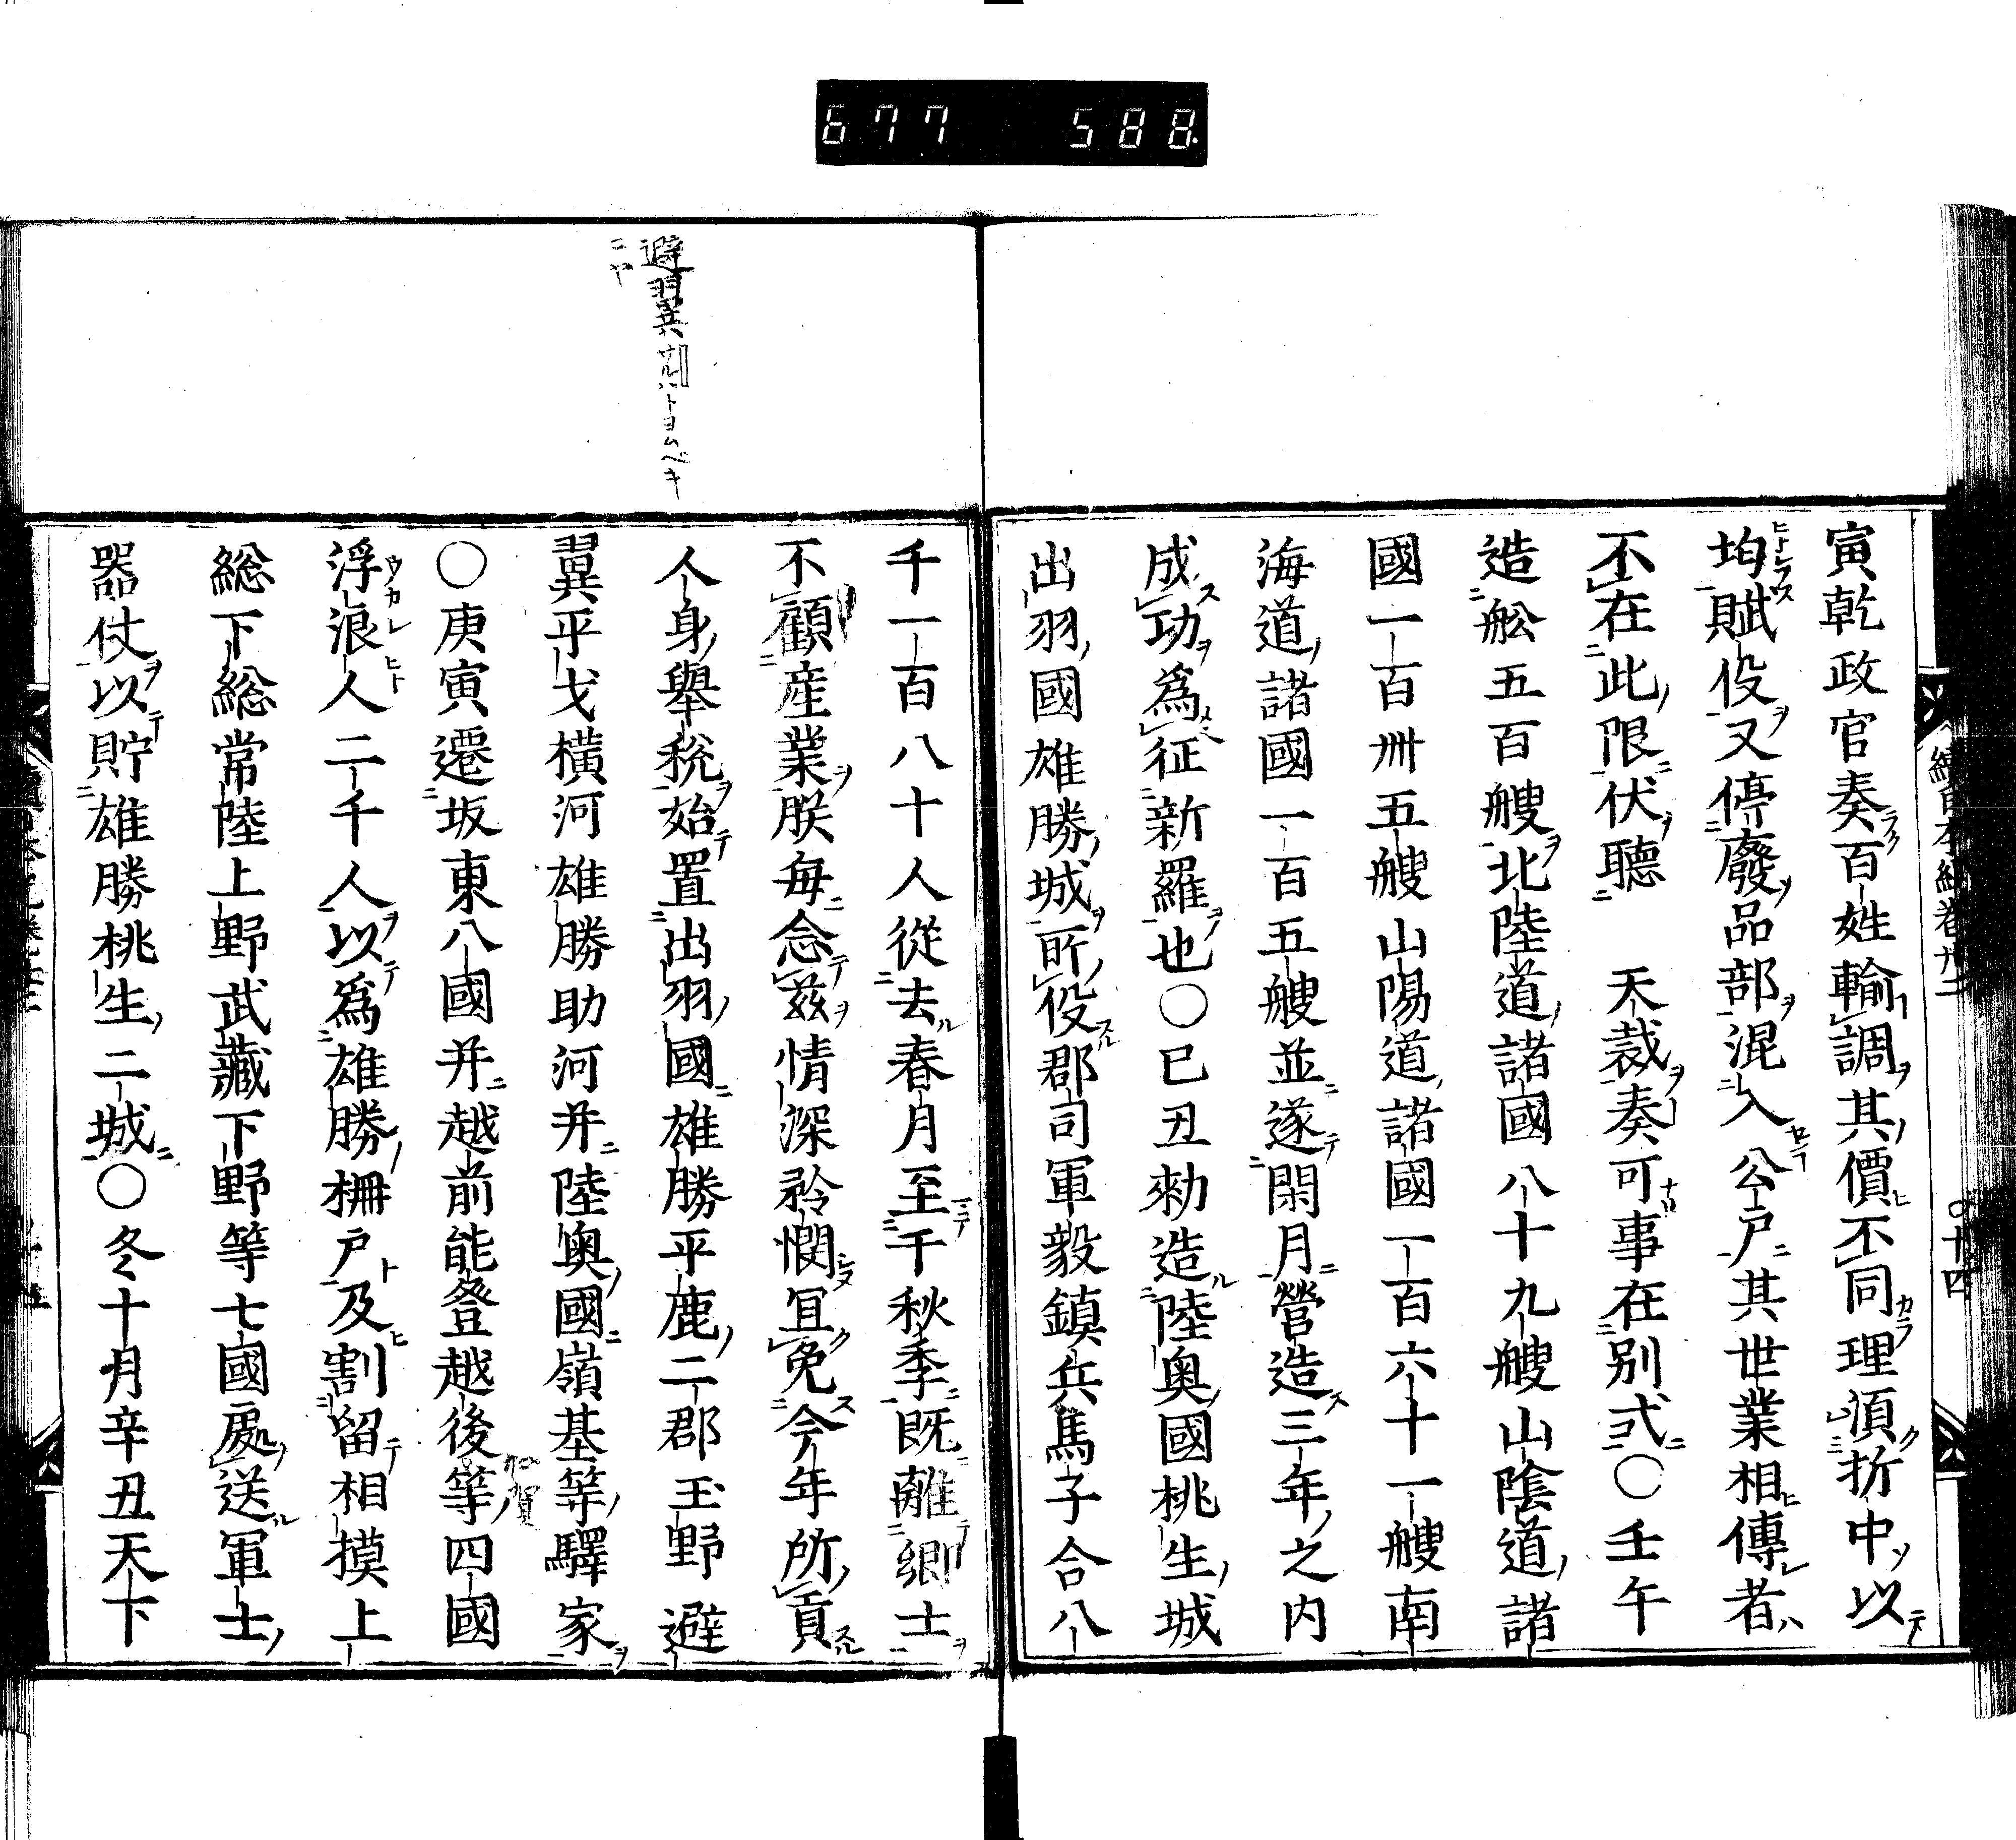 677 588
寅乾政官奏百姓輸調其價不同理湏折中以
均賦役又停廢品部混入公戸其世業相傳者
不在此限伏聽 天裁奏可事在別式○壬午
造舩五百艘北陸道諸國八十九艘山陰道諸
國一百卌五艘山陽道諸國一百六十一艘南
海道諸國一百五艘並遂閑月營造三年之内
成功爲征新羅也○已丑勑造陸奥國桃生城
出羽國雄勝城所役郡司軍毅鎮兵馬子合八
避翼
千一百八十人從去春月至千秋季既離郷士
不顧産業朕毎念茲情深矜憫宜免今年所貢
人身舉稅始置出羽國雄勝平鹿二郡玉野避
翼平戈横河雄勝助河并陸奥國嶺基等驛家
○庚寅遷坂東八國并越前能登越後等四國
浮浪人二千人以爲雄勝柵戸及割留相摸上
総下総常陸上野武藏下野等七國處送軍士
器仗以貯雄勝桃生二城○冬十月辛丑天下